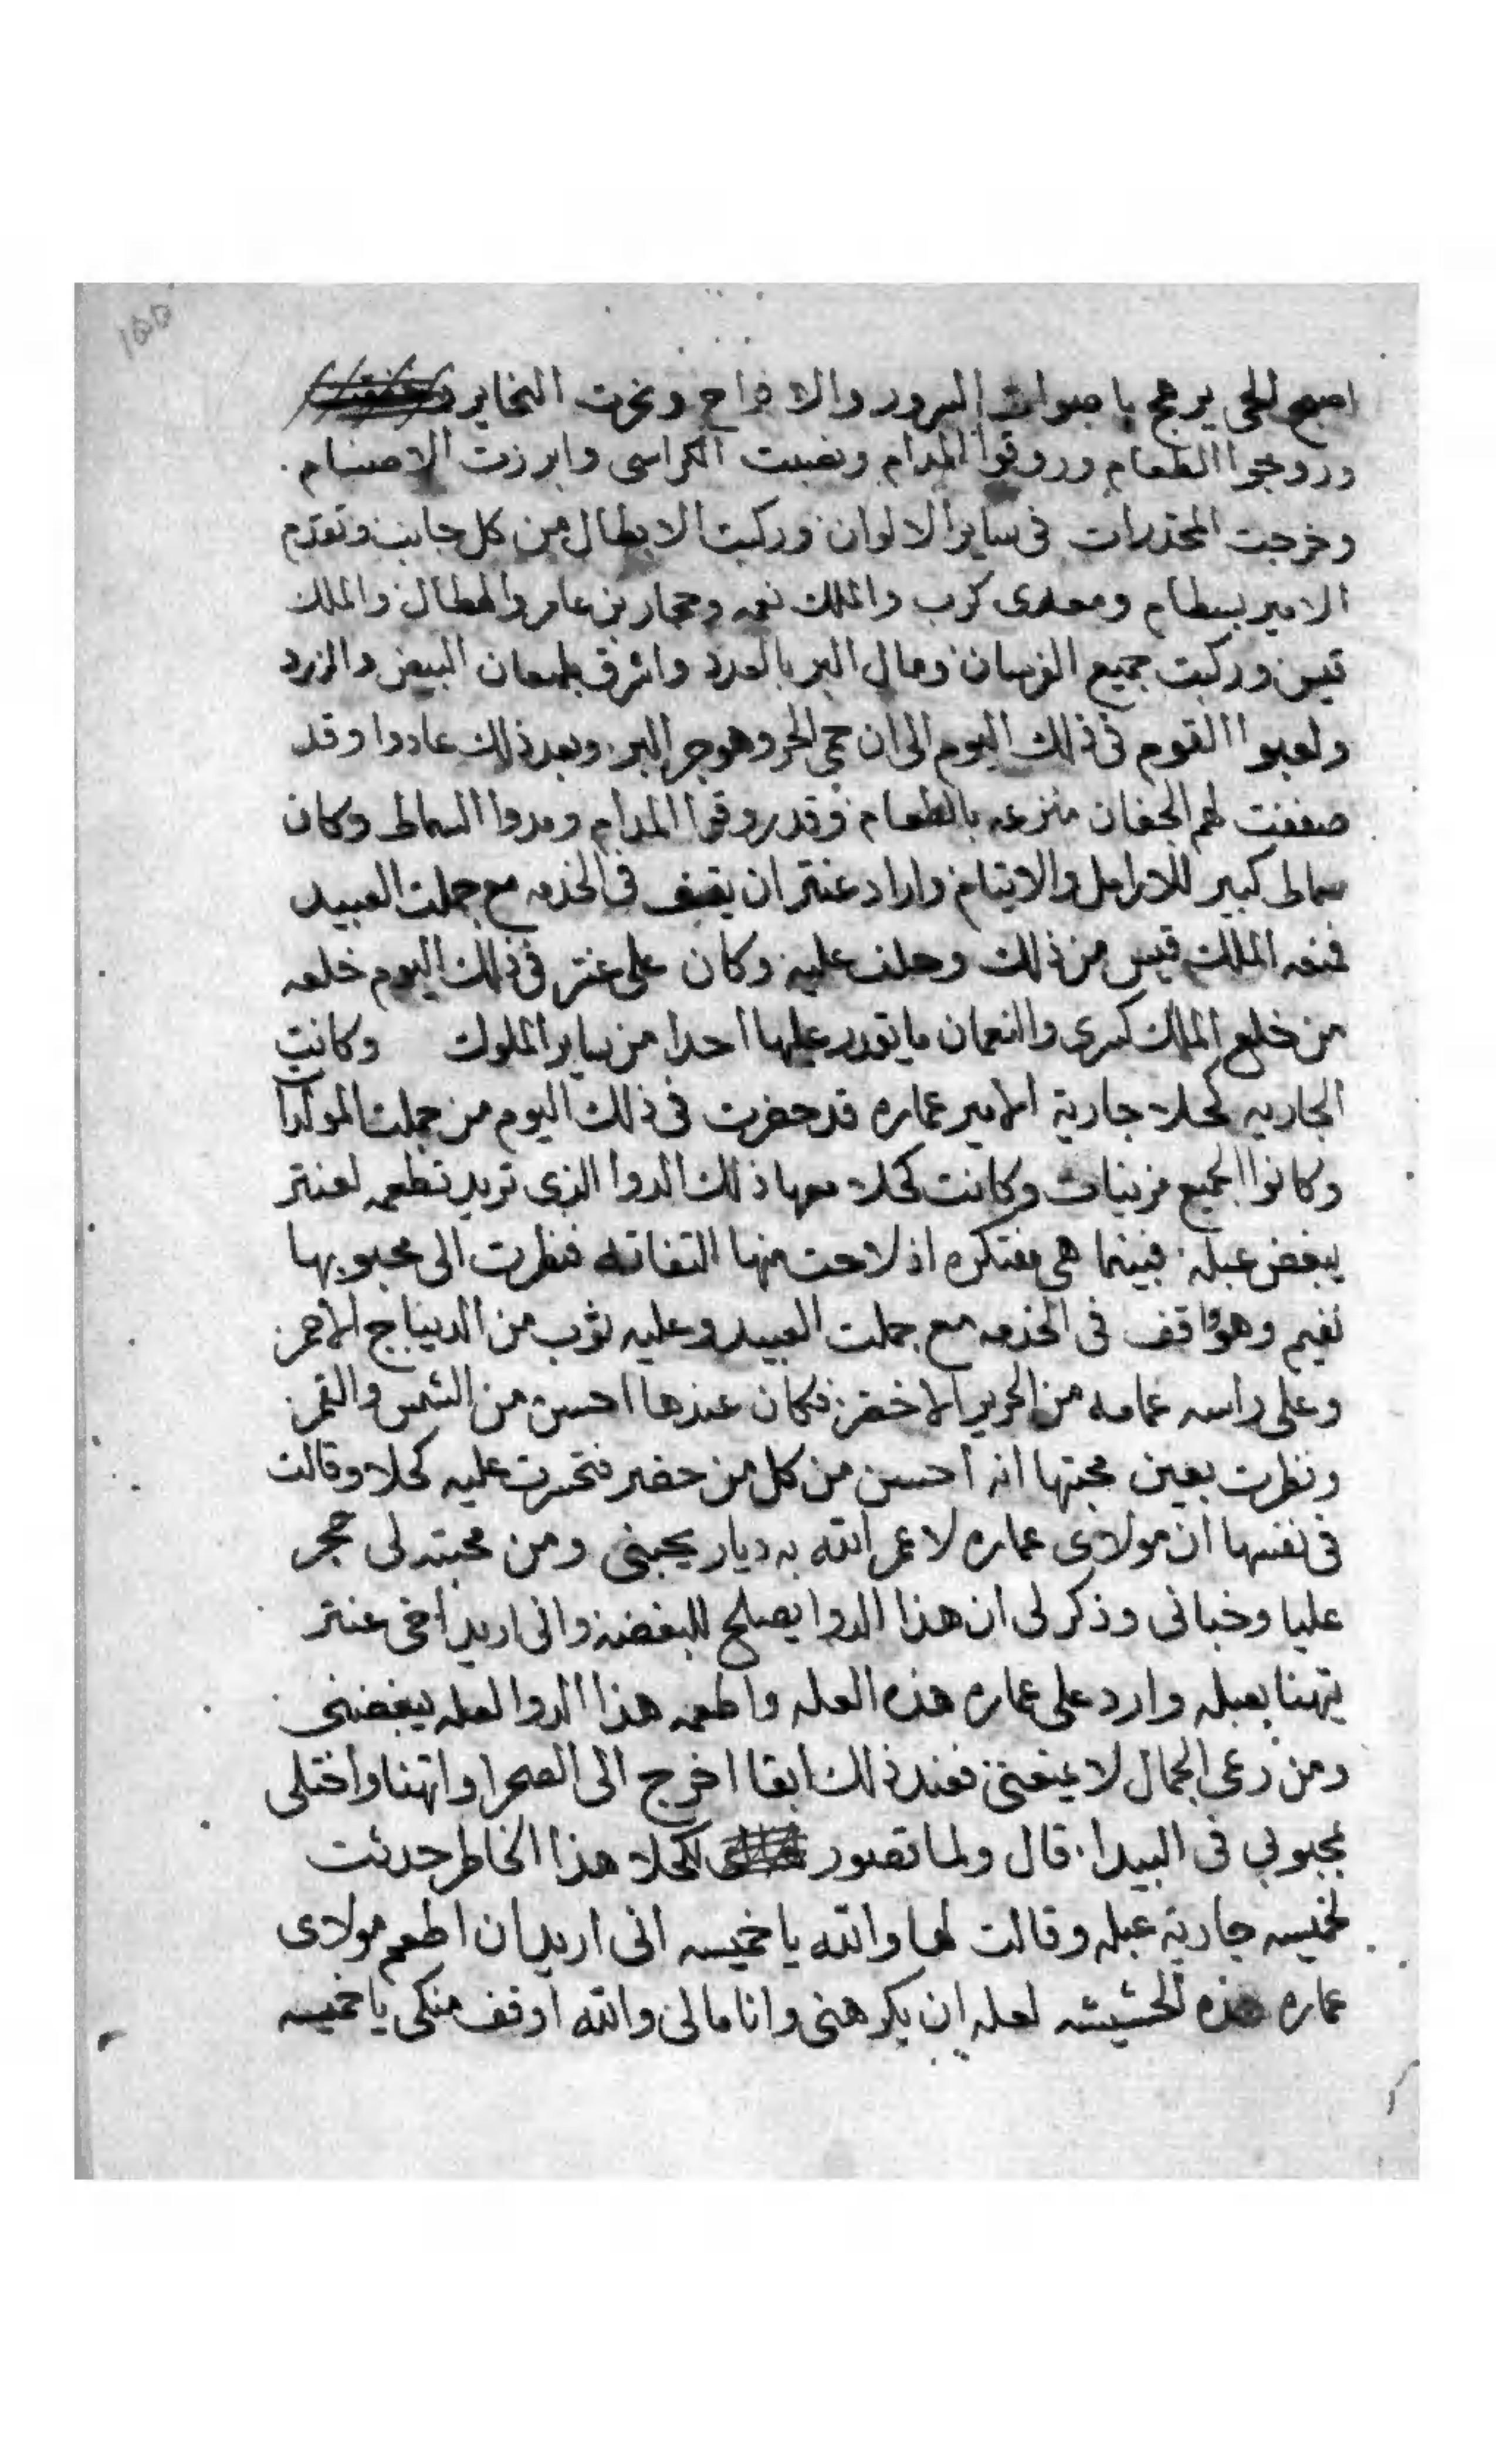 155
اصبح الحى يرهج باصوات السرور والافراح ونحرت النحاير و
وروجوا الطعام وروقوا المدام ونصبت الكراسى وابرزت الاصنام.
وخرجت المخدرات فى ساير الالوان وركبت الابطال من كل جانب وتقدم
الامير بسطام ومعدى كرب والملك نعمه وحجار بن عامر والهطال والملك
قيس وركبت جميع الفرسان ومال البر بالعدد واشرق بلمعان البيض والزرد
ولعبوا القوم فى ذلك اليوم الى ان حمى الحر وهوجر البر وبعد ذلك عادوا وقد
صففت لهم الجفان منزعه بالطعام وقد روقوا المدام ومدوا السماط وكان
سماط كبير للارامل والايتام واراد عنتر ان يقف فى الخدمه مع جملت العبيد
فمنعه الملك قيس من ذلك وحلف عليه وكان على عنتر فى ذلك اليوم خلعه
من خلع الملك كسرى والنعمان ما يقدر عليها احدا من ساير الملوك وكانت
الجاريه كحلا جارية الامير عماره قد حضرت فى ذلك اليوم من جملت المولدا
وكانوا الجميع مزينات وكانت كحلا معها ذلك الدوا الذى تريد تطعمه لعنتر
يبغض عبله. فبينما هى مفتكره اذ لاحت منها التفاته فنظرت الى محبوبها
نفيم وهو واقف فى الخدمه مع جملت العبيد وعليه ثوب من الديباج الاحمر
وعلى راسه عمامه من الحرير الاخضر فكان عندها احسن من الشمس والقمر
ونظرت بعين محبتها انه احسن من كل من حضر فتحسرت عليه كحلا وقالت
فى نفسها ان مولاى عماره لا عمر الله به ديار يحبنى ومن محبته لى حجر
عليا وخبانى وذكر لى ان هذا الدوا يصلح للبغضه وانى اريد اخى عنتر
يتهنا بعبله وارد على عماره هذه العله واطعمه هذا الدوا لعله يبغضنى
ومن رعى الجمال لا يمنعنى فعند ذلك ابقا اخرج الى الصحرا واتهنا واختلى
بمحبوبى فى البيدا. قال ولما تصور لكحلا هذا الخاطر حدثت
لخميسه جارية عبله وقالت لها والله يا خميسه انى اريد ان اطعم مولاى
عماره هذه الحشيشه لعله ان يكرهنى وانا مالى والله اوقف منكى يا خميسه